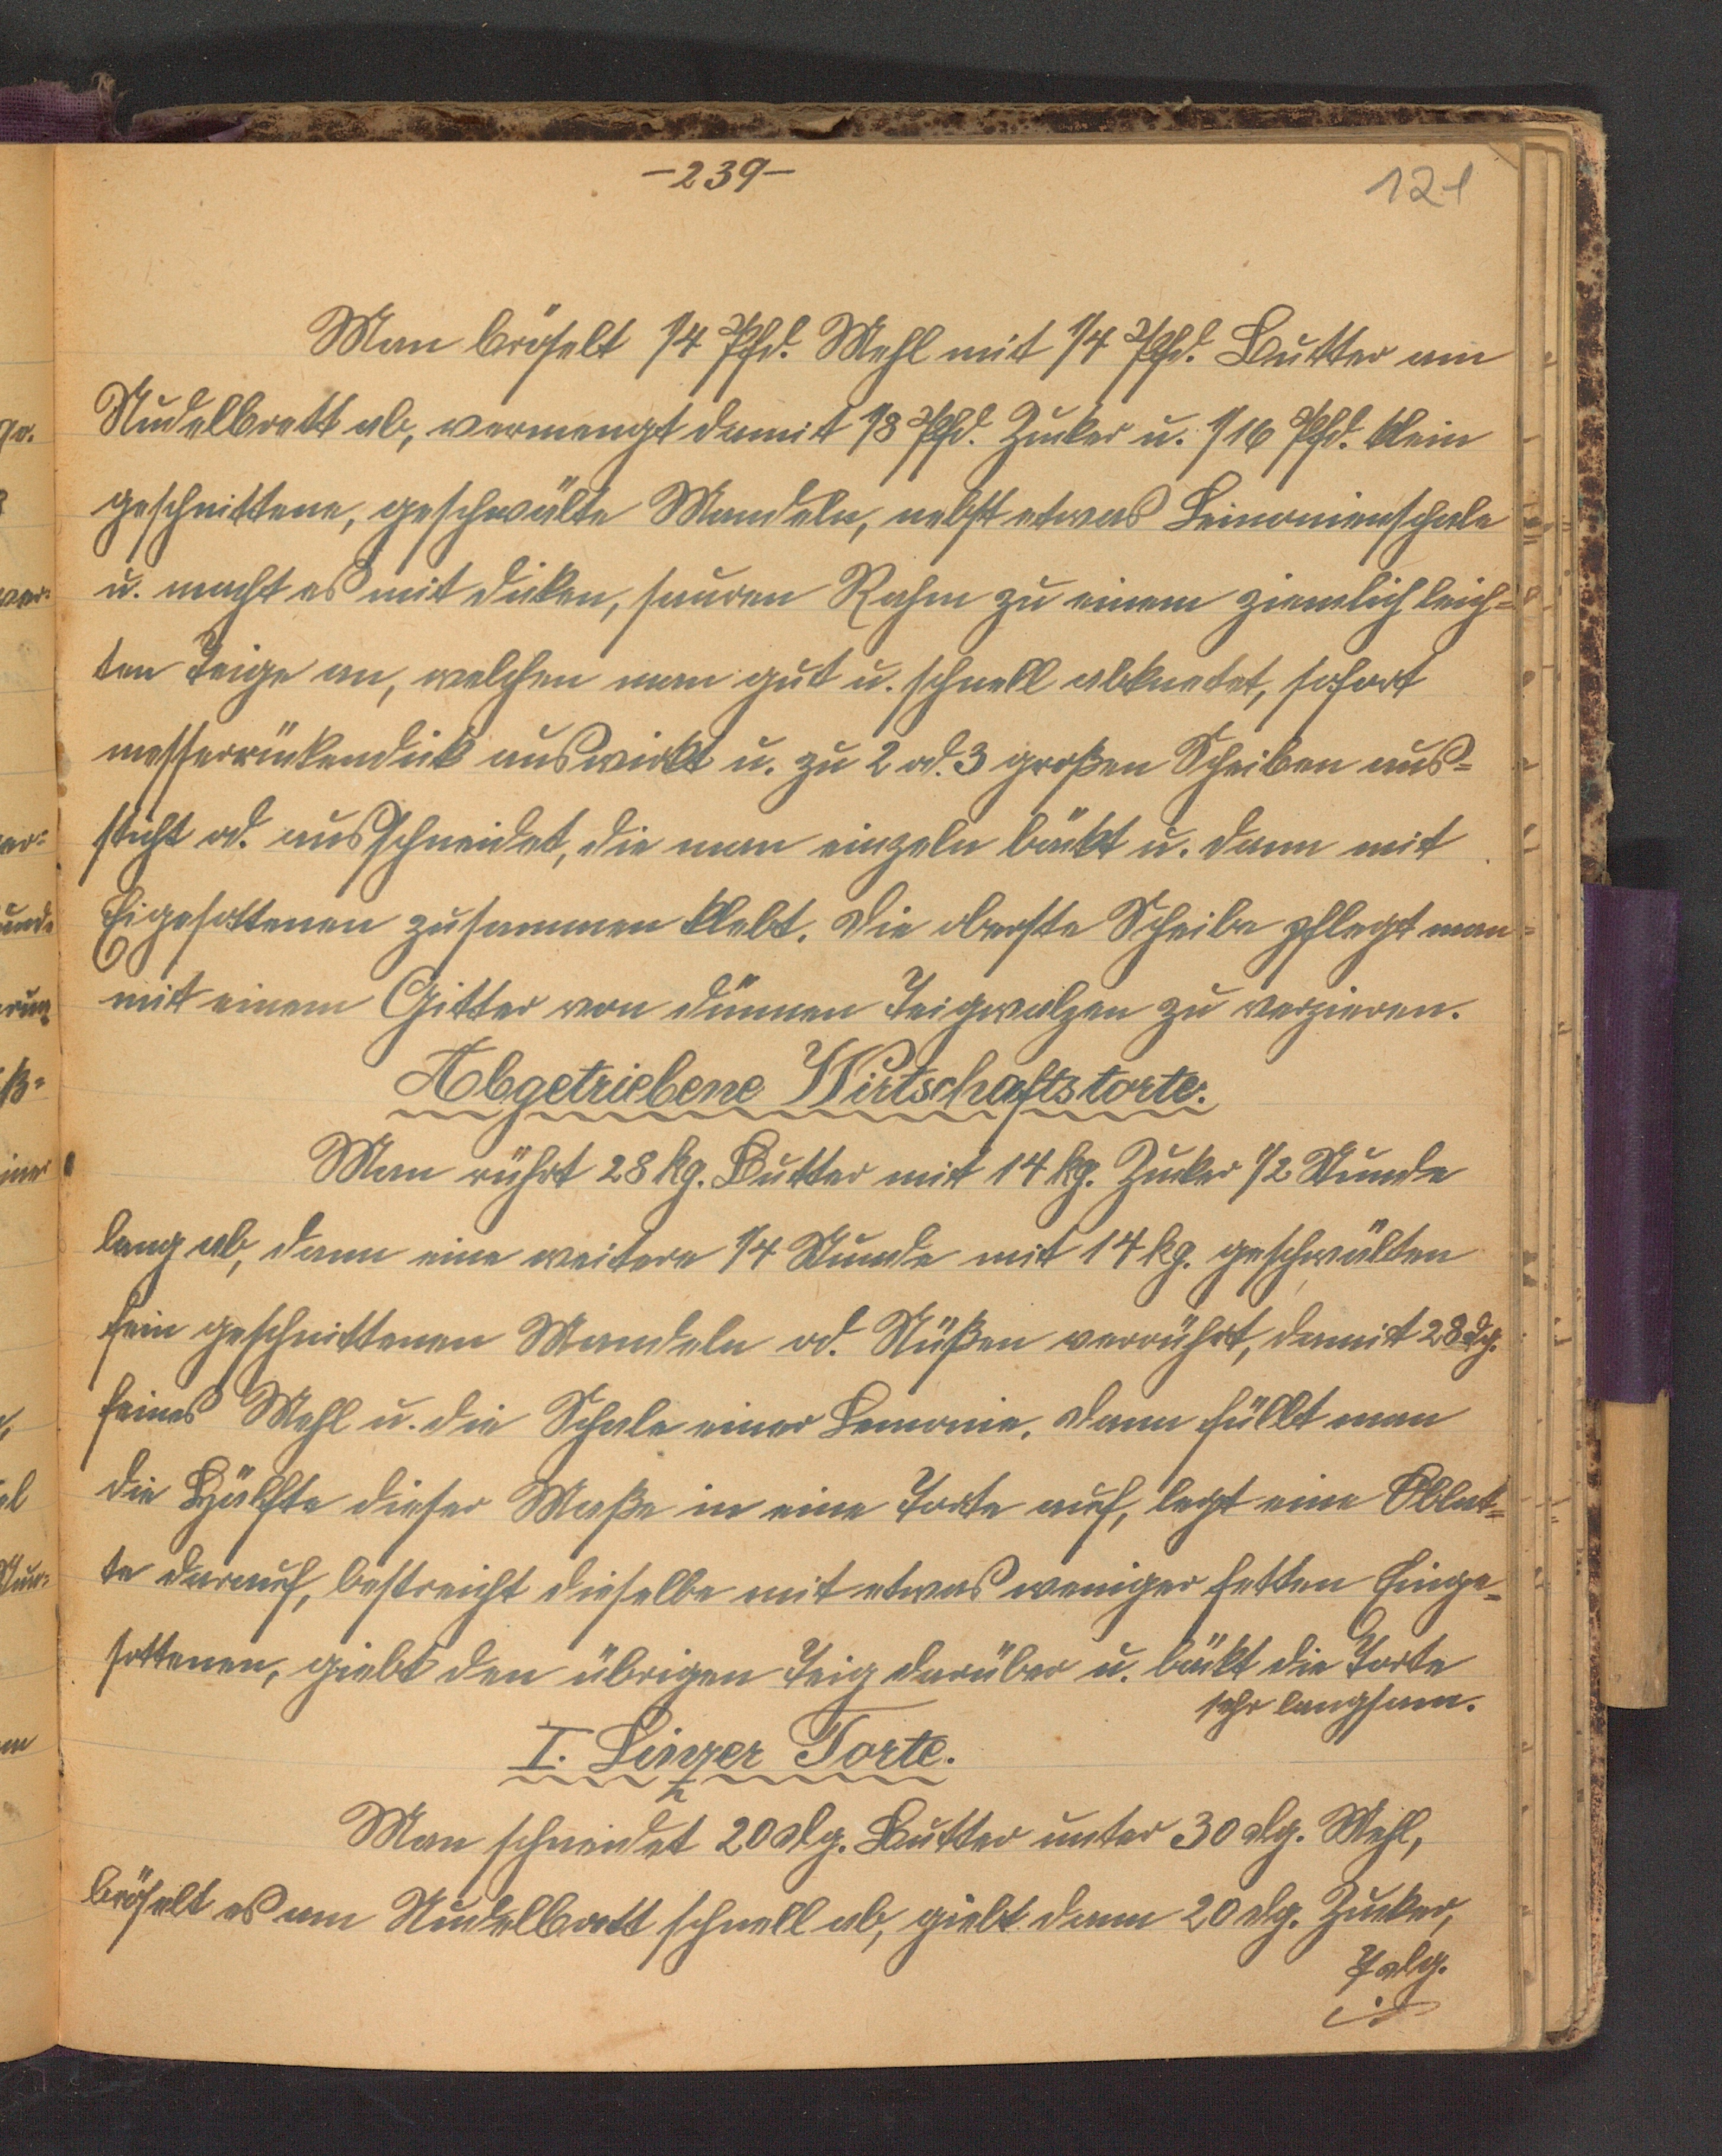 -239-
121
Man bröselt 1/4 Pfd. Mehl mit 1/4 Pfd. Butter am
Nudelbrett ab, vermengt damit 1/8 Pfd. Zucker u. 1/16 Pfd. klein
geschnittene, geschwälte Mandeln, nebst etwas Leimonienschale
u. macht es mit dicken, sauren Rahm zu einem ziemlich leich=
ten Teige an, welchen man gut u. schnell abknetet, sofort
messerrückendick auswirkt u. zu 2 od. 3 großen Scheiben aus=
sticht od. ausschneidet, die man einzeln bäckt u. dann mit
Eigesottenen zusammen klebt. Die oberste Scheibe pflegt man
mit einem Gitter von dünnen Teigwalzen zu verzieren.
Abgetriebene Wirtschaftstorte.
Man rührt 28 kg. Butter mit 14 kg. Zucker 1/2 Stunde
lang ab, dann eine weitere 1/4 Stunde mit 14 kg. geschwälten
fein geschnittenen Mandeln od. Nüßen verrührt, damit 28 dg.
feines Mehl u. die Schale einer Lemonie. Dann füllt man
die Hälfte dieser Maße in eine Torte auf, legt eine Oblat=
te darauf, bestreicht dieselbe mit etwas weniger fetten Einge=
sottenen, giebt den übrigen Teig darüber u. bäckt die Torte
sehr langsam.
I. Linzer Torte.
Man schneidet 20 dg. Butter unter 30 dg. Mehl,
bröselt es am Nudelbrett schnell ab, giebt dann 20 dg. Zucker,
7 dg.